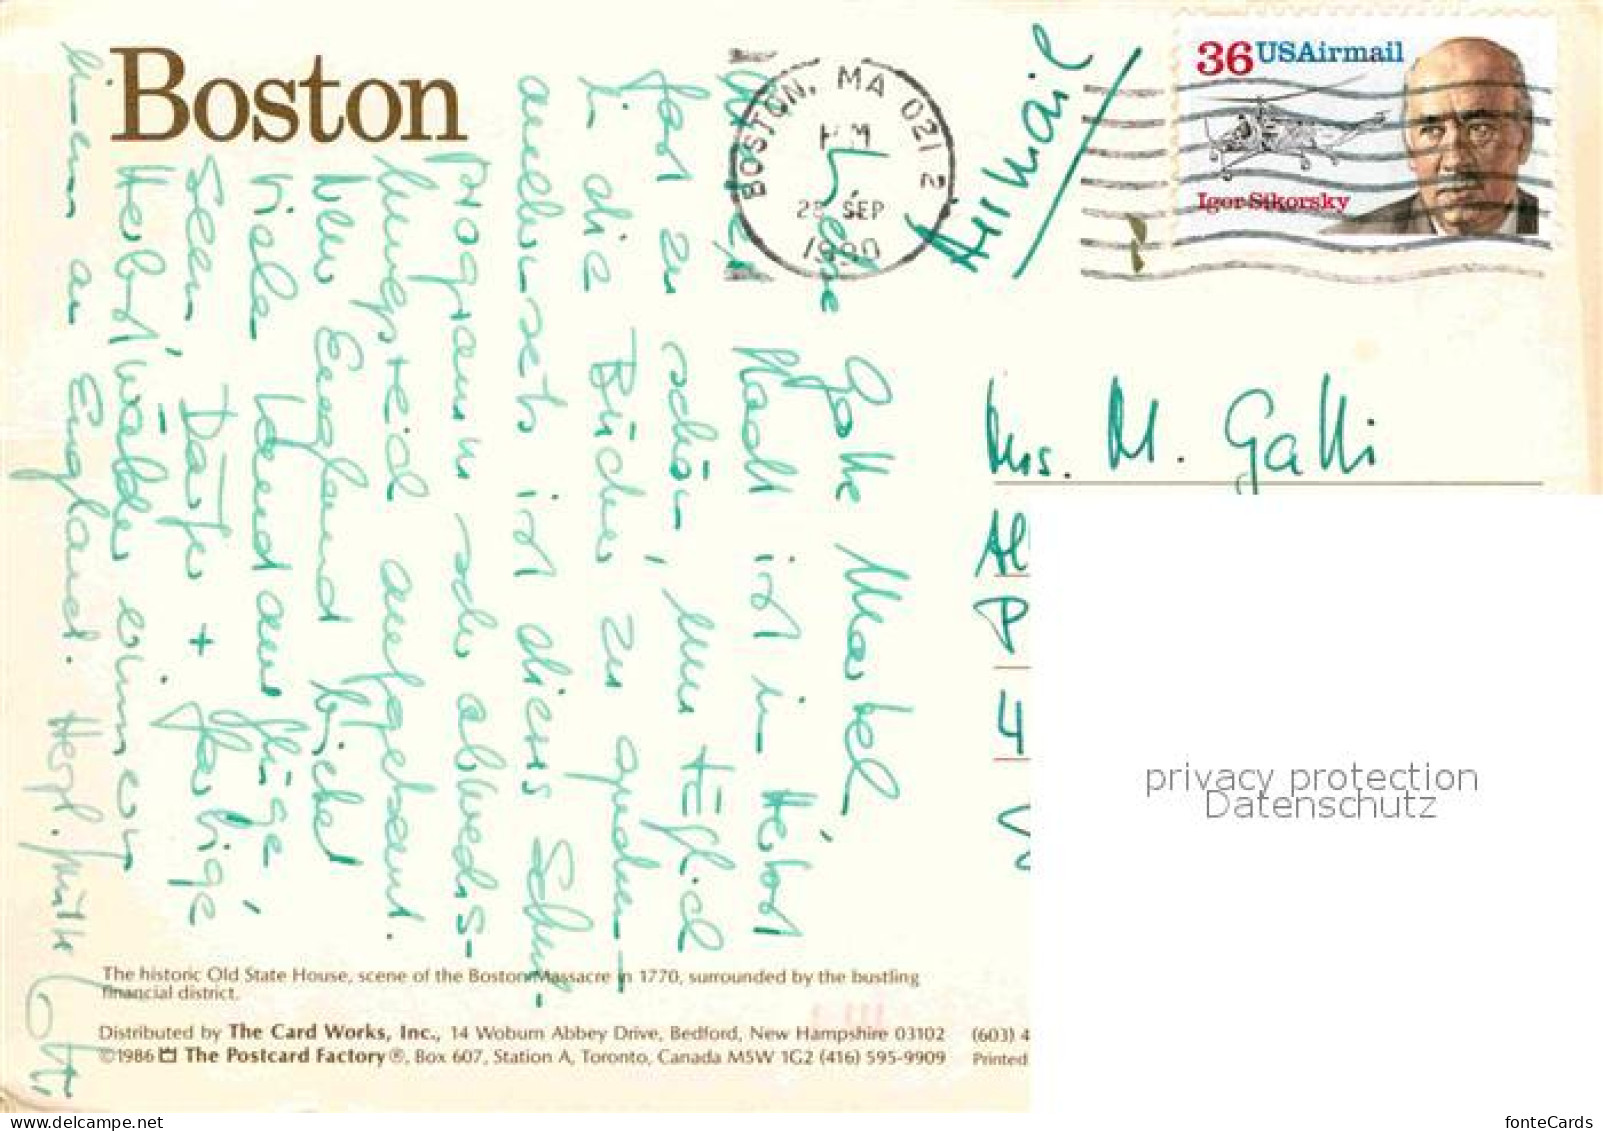 Boston
BOSTON, MA 021 2
PM
SEP
1990
Airmail
36 USAirmail
Igor Sikorsky
Liebe Gotte Maribel
Stadt ist im Herbst
fast zu schön, um täglich
in die Bücher zu gucken
anderseits ist dieses Schul-
programm sehr abwechs-
lungsreich aufgebaut.
New England bietet
viele Wanderausflüge,
Seen, Dörfer + farbige
Herbstwälder erinnern
einen an England. Herzl. Grüsse
Mrs. M. Galli
Al
P
4
privacy protection
Datenschutz
The historic Old State House, scene of the Boston Massacre in 1770, surrounded by the bustling
financial district.
Distributed by The Card Works, Inc., 14 Woburn Abbey Drive, Bedford, New Hampshire 03102 (603) 4
©1986 The Postcard Factory®, Box 607, Station A, Toronto, Canada M5W 1G2 (416) 595-9909 Printed
fonteCards